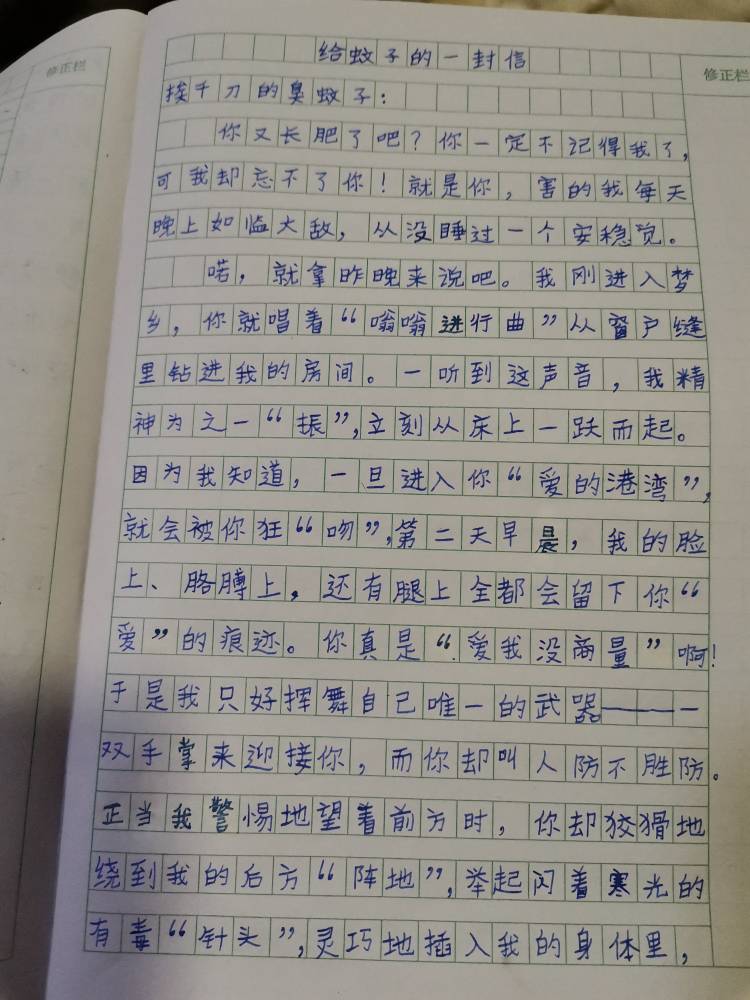 修正栏
修正栏
给蚊子的一封信
挨千刀的臭蚊子：
你又长肥了吧？你一定不记得我了，
可我却忘不了你！就是你，害的我每天
晚上如临大敌，从没睡过一个安稳觉。
喏，就拿昨晚来说吧。我刚进入梦
乡，你就唱着“嗡嗡进行曲”从窗户缝
里钻进我的房间。一听到这声音，我精
神为之一“振”，立刻从床上一跃而起。
因为我知道，一旦进入你“爱的港湾”，
就会被你狂“吻”，第二天早晨，我的脸
上、胳膊上，还有腿上全都会留下你“
爱”的痕迹。你真是“爱我没商量”啊！
于是我只好挥舞自己唯一的武器——一
双手掌来迎接你，而你却叫人防不胜防。
正当我警惕地望着前方时，你却狡猾地
绕到我的后方“阵地”，举起闪着寒光的
有毒“针头”，灵巧地插入我的身体里，